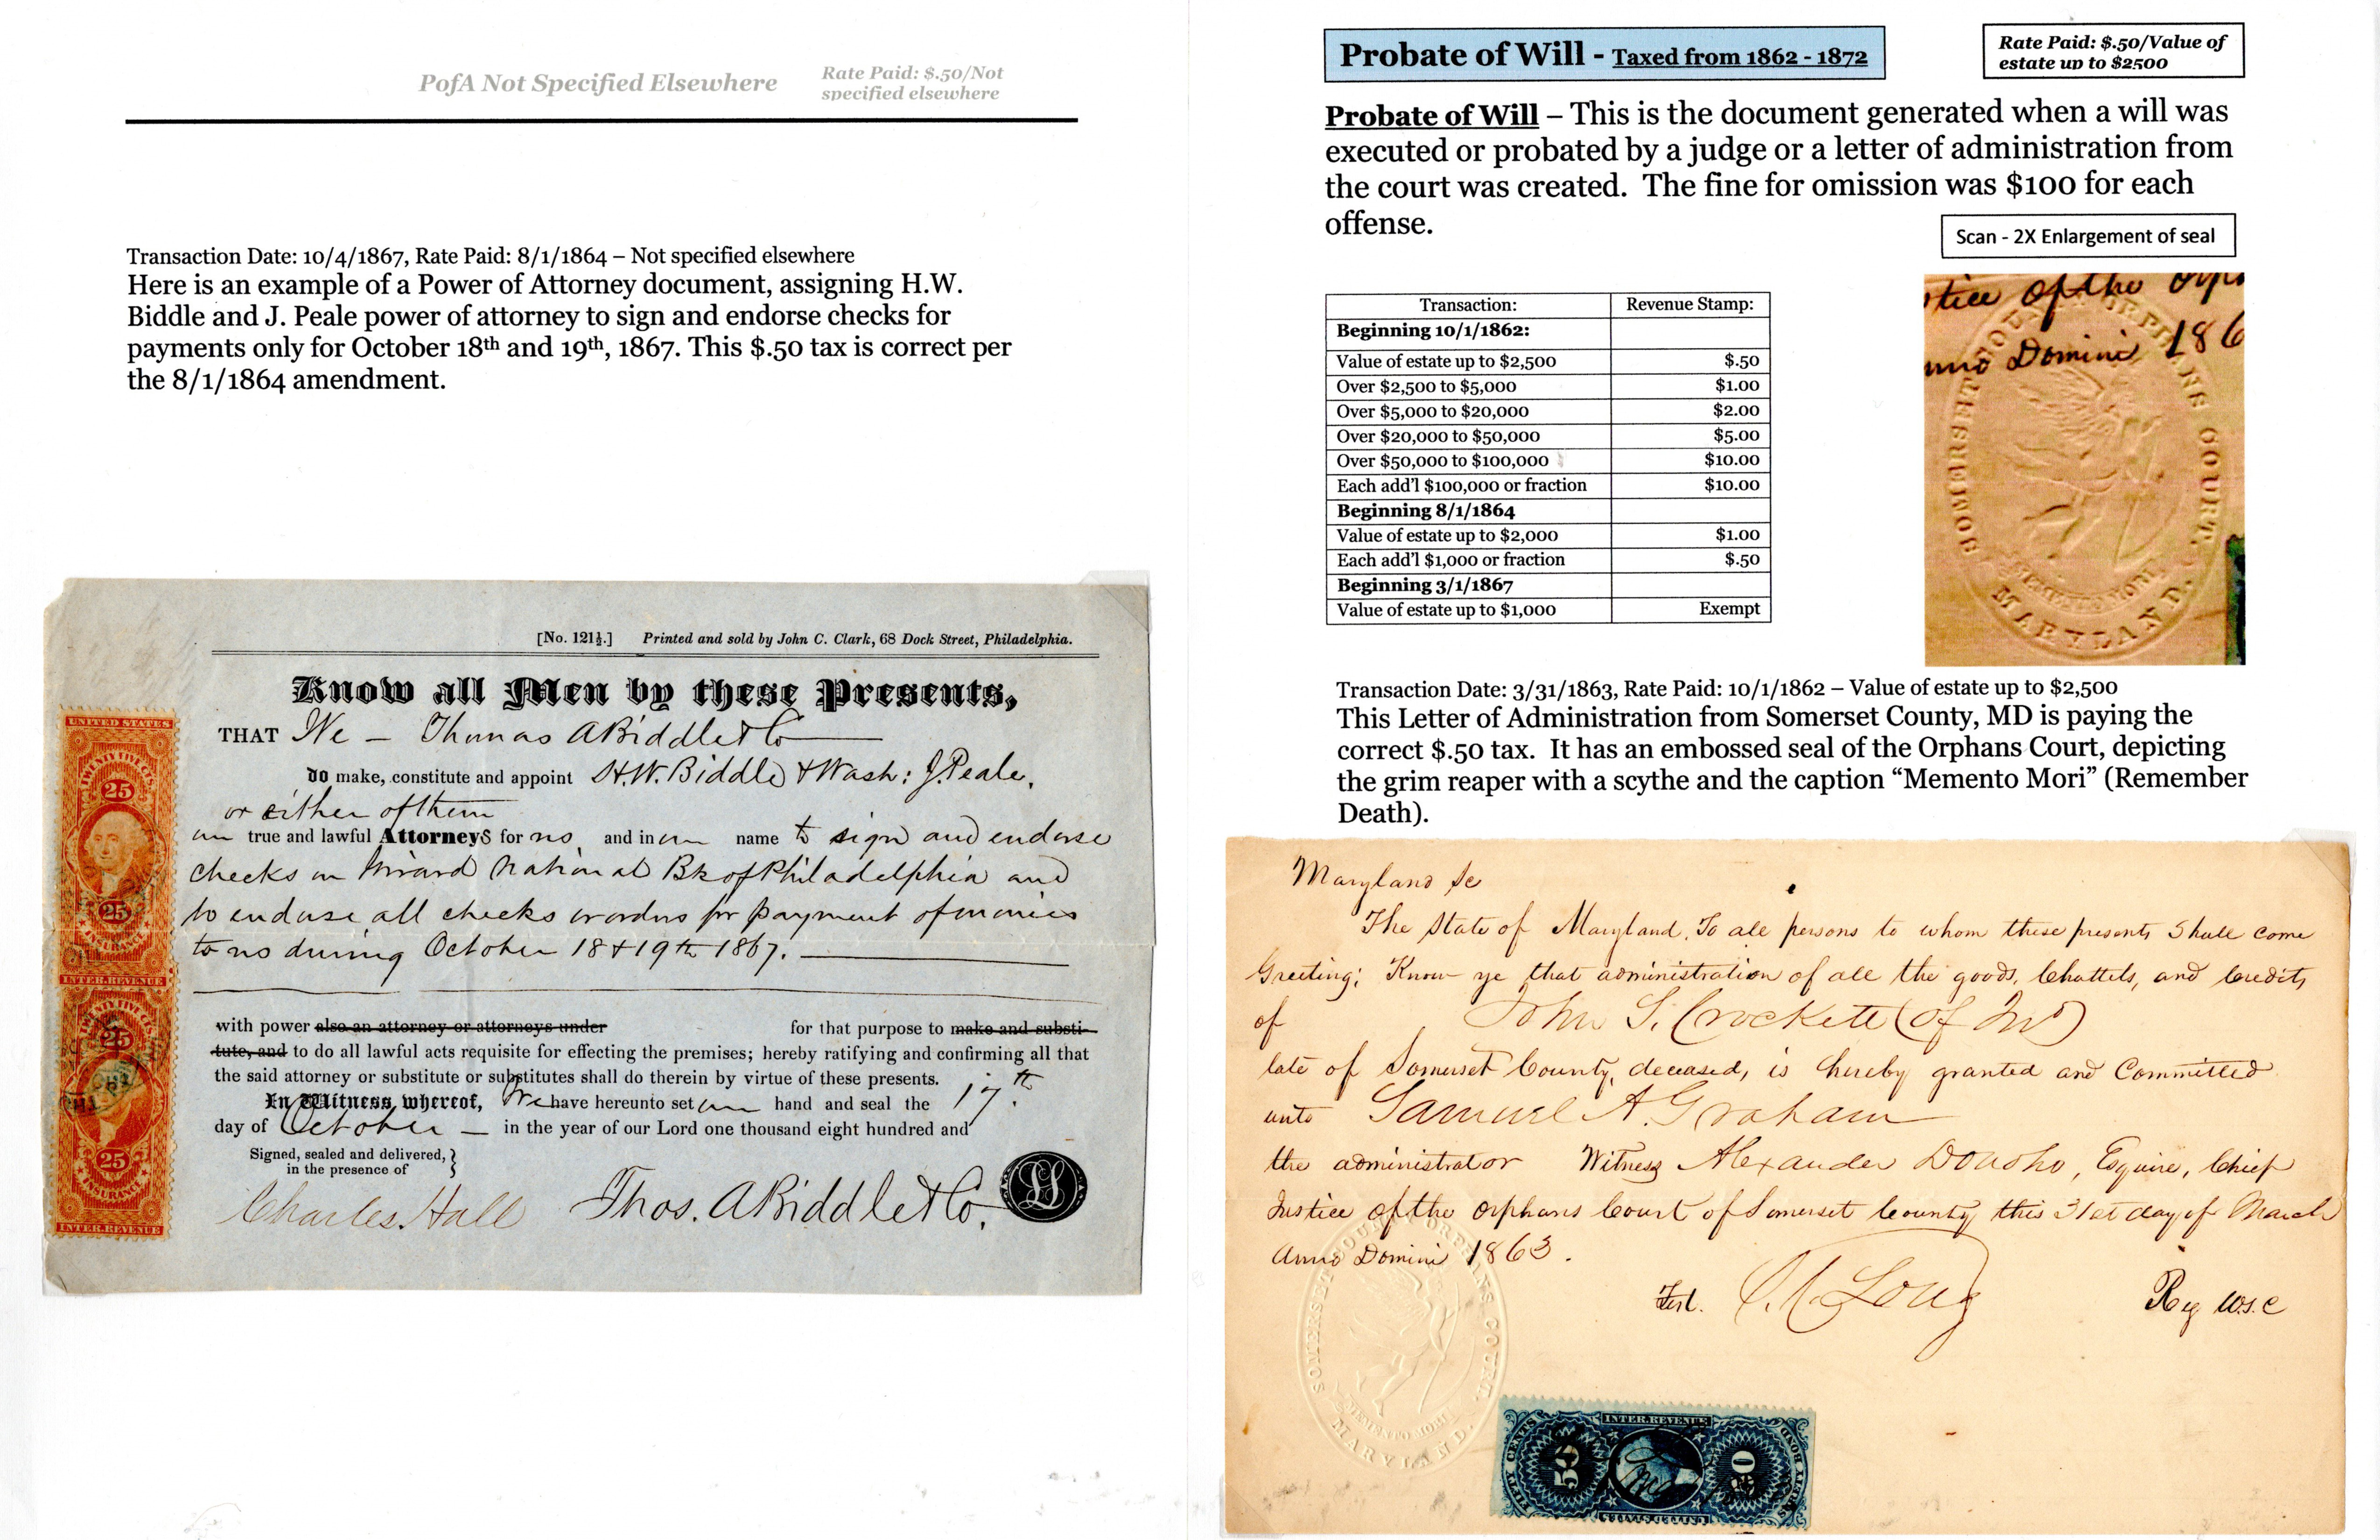 PofA Not Specified Elsewhere
Rate Paid: $.50/Not
specified elsewhere
Transaction Date: 10/4/1867, Rate Paid: 8/1/1864 – Not specified elsewhere
Here is an example of a Power of Attorney document, assigning H.W.
Biddle and J. Peale power of attorney to sign and endorse checks for
payments only for October 18th and 19th, 1867. This $.50 tax is correct per
the 8/1/1864 amendment.
[No. 121½.] Printed and sold by John C. Clark, 68 Dock Street, Philadelphia.
Know all Men by these Presents,
THAT We – Thomas A Biddle & Co
do make, constitute and appoint H.W. Biddle & Wash: J. Peale,
or either of them
our true and lawful Attorneys for us, and in our name to sign and endorse
checks on Girard National Bk of Philadelphia and
to endorse all checks or orders for payment of monies
to us during October 18 & 19th 1867.
with power also an attorney or attorneys under for that purpose to make and substi-
tute, and to do all lawful acts requisite for effecting the premises; hereby ratifying and confirming all that
the said attorney or substitute or substitutes shall do therein by virtue of these presents.
In Witness whereof, We have hereunto set our hand and seal the 17th.
day of October – in the year of our Lord one thousand eight hundred and
Signed, sealed and delivered,
in the presence of
Charles Hall
Thos. A Biddle & Co.
UNITED STATES
TWENTY FIVE CTS
25
25
INSURANCE
INTER. REVENUE
TWENTY FIVE CTS
25
25
INSURANCE
INTER. REVENUE
Probate of Will - Taxed from 1862 - 1872
Rate Paid: $.50/Value of
estate up to $2500
Probate of Will – This is the document generated when a will was
executed or probated by a judge or a letter of administration from
the court was created. The fine for omission was $100 for each
offense.
Scan - 2X Enlargement of seal
Transaction: Revenue Stamp:
Beginning 10/1/1862:
Value of estate up to $2,500 $.50
Over $2,500 to $5,000 $1.00
Over $5,000 to $20,000 $2.00
Over $20,000 to $50,000 $5.00
Over $50,000 to $100,000 $10.00
Each add'l $100,000 or fraction $10.00
Beginning 8/1/1864
Value of estate up to $2,000 $1.00
Each add'l $1,000 or fraction $.50
Beginning 3/1/1867
Value of estate up to $1,000 Exempt
stice of the Orp
nno Domini 186
SOMERSET COUNTY ORPHANS COURT.
MEMENTO MORI
MARYLAND.
Transaction Date: 3/31/1863, Rate Paid: 10/1/1862 – Value of estate up to $2,500
This Letter of Administration from Somerset County, MD is paying the
correct $.50 tax. It has an embossed seal of the Orphans Court, depicting
the grim reaper with a scythe and the caption “Memento Mori” (Remember
Death).
Maryland Sc
The State of Maryland. To all persons to whom these presents shall come
Greeting: Know ye that administration of all the goods, Chattels, and Credits
of John S. Crockett (of Jno)
late of Somerset County, deceased, is hereby granted and Committed
unto Samuel A. Graham
the administrator Witness Alexander Donoho, Esquire, Chief
Justice of the Orphans Court of Somerset County this 31st day of March
Anno Domini 1863.
Test. Long Reg W.S.C
SOMERSET COUNTY ORPHANS COURT.
MEMENTO MORI
MARYLAND.
INTER. REVENUE
FIFTY CENTS
50
50